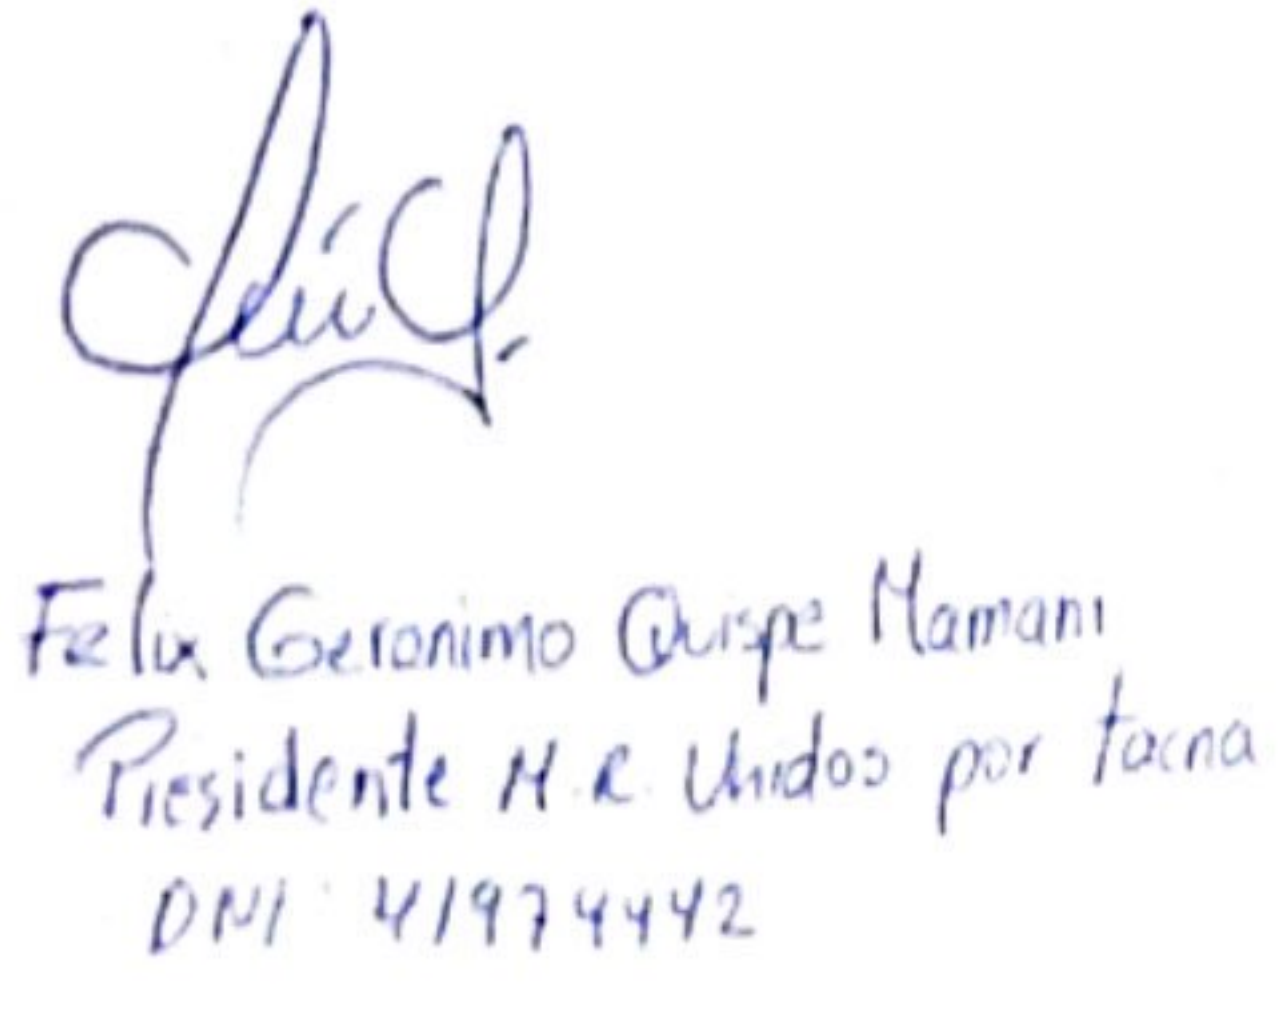 Felix Geronimo Quispe Mamani
Presidente M.R. Unidos por tacna
DNI: 41974442